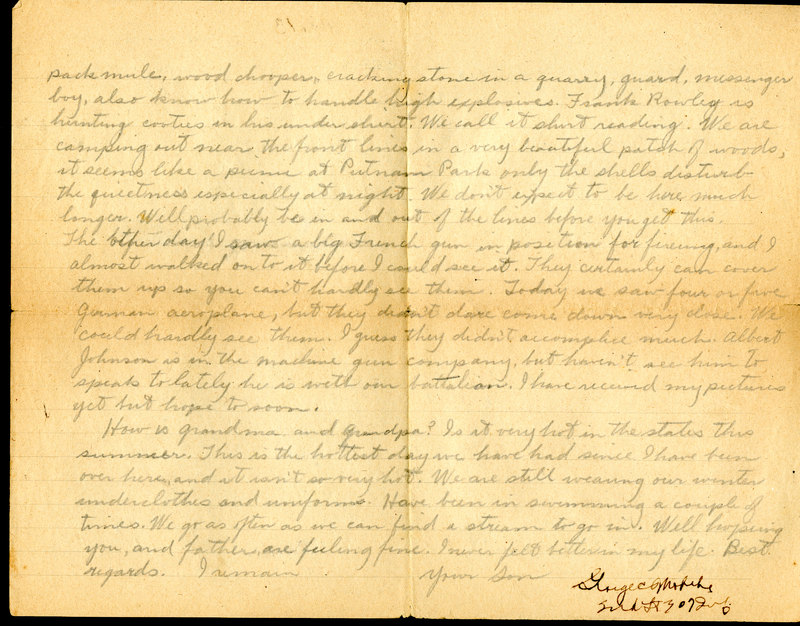 pack mule, wood chooper, cracking stone in a quarry, guard, messenger
boy, also know how to handle high explosives. Frank Rowley is
hunting cooties in his under shirt. We call it shirt reading. We are
camping out near the front lines in a very beautiful patch of woods,
it seems like a picnic at Putnam Park only the shells disturb
the quietness especially at night. We don't expect to be here much
longer. Will probably be in and out of the lines before you get this.
The other day I saw a big French gun in position for fireing, and I
almost walked on to it before I could see it. They certainly can cover
them up so you can't hardly see them. Today we saw four or five
German aeroplane, but they didn't dare come down very close. We
could hardly see them. I guess they didn't accomplice much. Albert
Johnson is in the machine gun company, but haven't see him to
speak to lately he is with our battalian. I have received my pictures
yet but hope to soon.
How is grandma and grandpa? Is it very hot in the states this
summer. This is the hottest day we have had since I have been
over here, and it isn't so very hot. We are still wearing our winter
underclothes and uniforms. Have been in swimming a couple of
times. We go as often as we can find a stream to go in. Well hopeing
you, and father, are feeling fine. I never felt better in my life. Best
regards. I remain Your Son
George
307